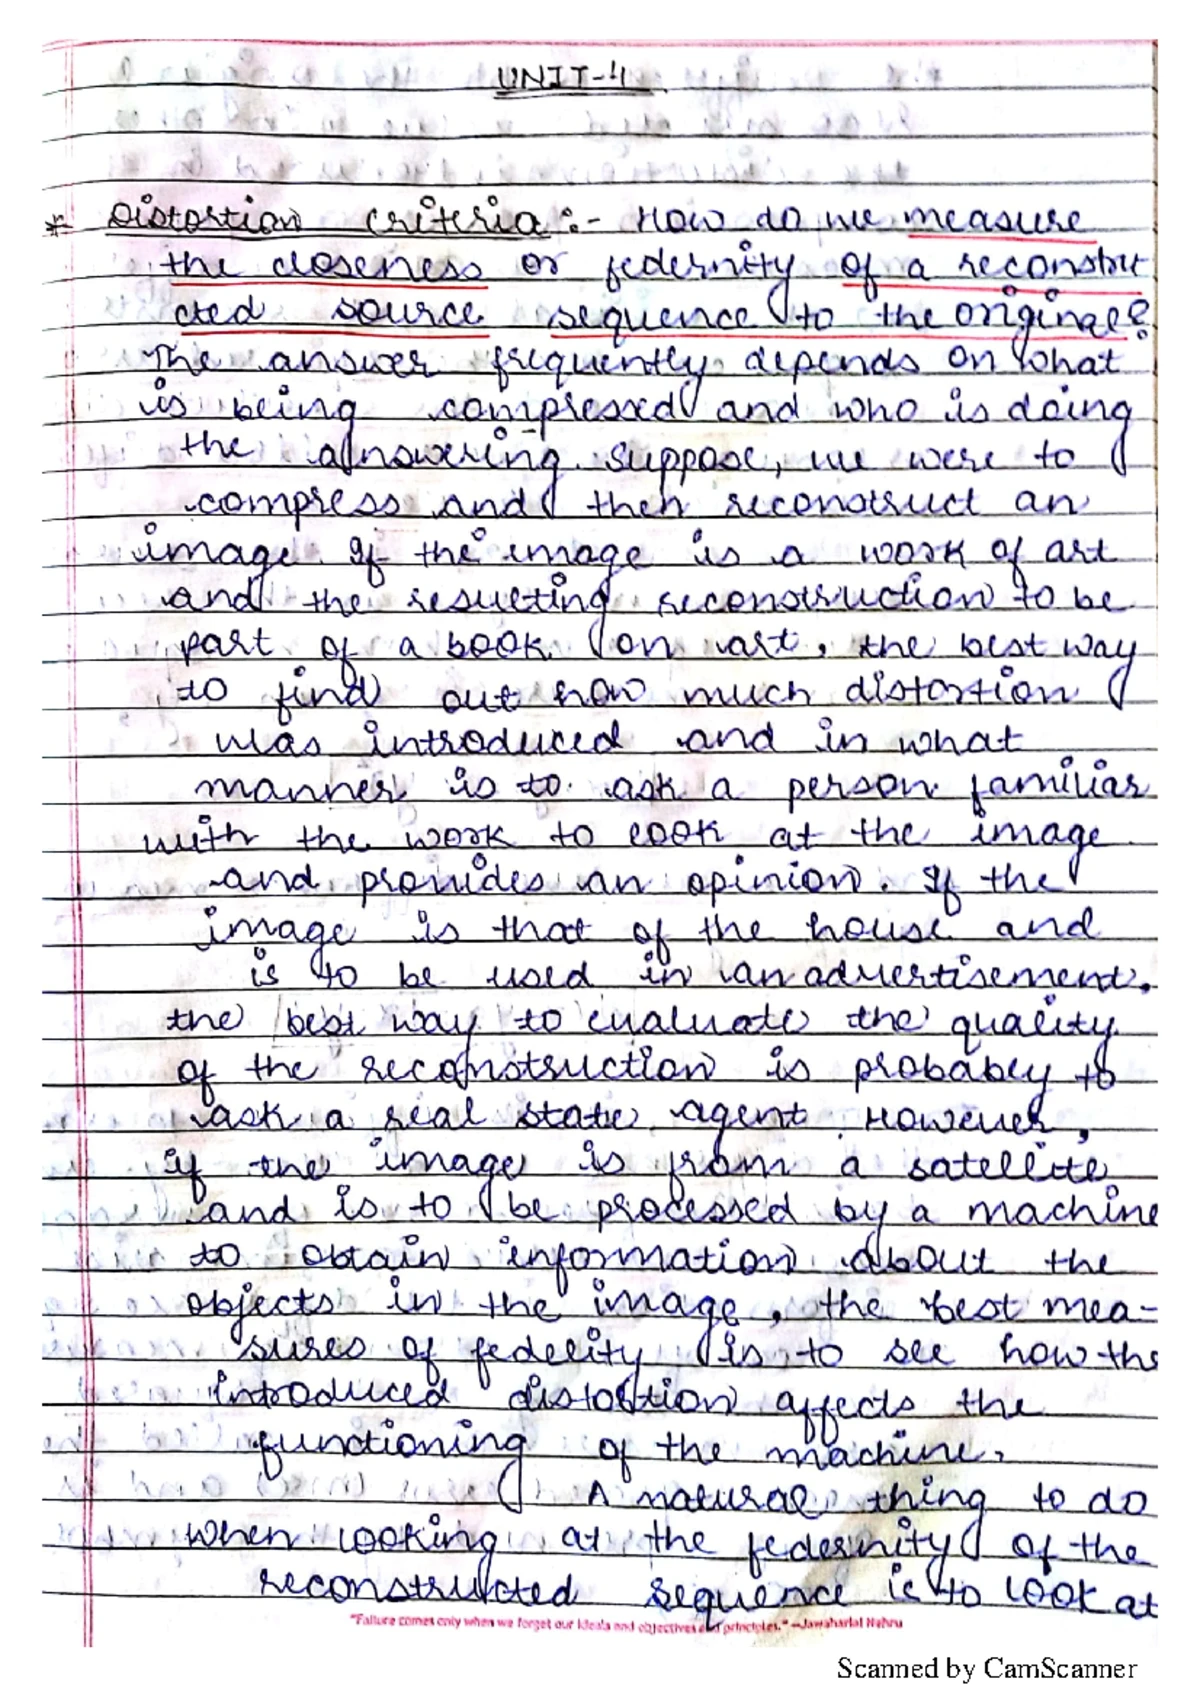 UNIT-4
* Distortion criteria :- How do we measure
the closeness or federnity of a reconstru
cted source sequence to the original?
The answer frequently depends on what
is being compressed and who is doing
the answering. Suppose, we were to
compress and then reconstruct an
image. If the image is a work of art
and the resulting reconstruction to be
part of a book on art, the best way
to find out how much distortion
was introduced and in what
manner is to ask a person familiar
with the work to look at the image
and provides an opinion. If the
image is that of the house and
is to be used in an advertisement.
the best way to evaluate the quality
of the reconstruction is probably to
ask a real state agent. However,
if the image is from a satellite
and is to be processed by a machine
to obtain information about the
objects in the image, the best mea-
sures of fedelity is to see how the
introduced distortion affects the
functioning of the machine.
A natural thing to do
when looking at the federnity of the
reconstructed sequence is to look at
"Failure comes only when we forget our ideals and objectives and principles." –Jawaharlal Nehru
Scanned by CamScanner